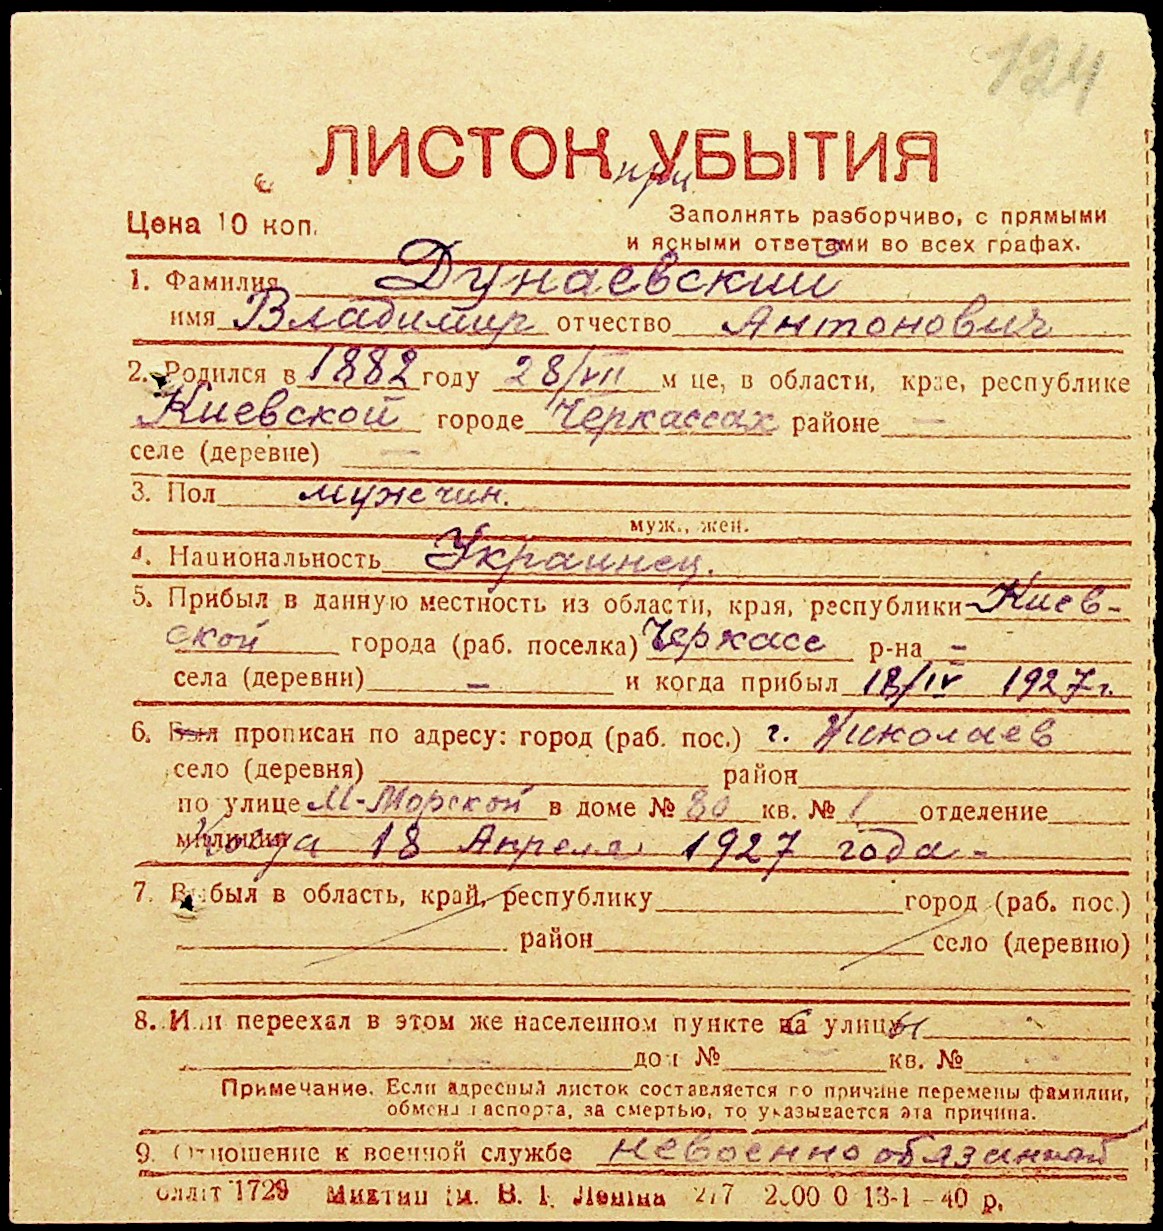 124
ЛИСТОК УБЫТИЯ
при
Цена 10 коп.
Заполнять разборчиво, с прямыми
и ясными ответами во всех графах.
1. Фамилия Дунаевский
имя Владимир отчество Антонович
2. Родился в 1882 году 28/VII м це, в области, крае, республике
Киевской городе Черкассах районе —
селе (деревне) —
3. Пол мужчин.
муж., жен.
4. Национальность Украинец.
5. Прибыл в данную местность из области, края, республики Киев-
ской города (раб. поселка) Черкасс р-на –
села (деревни) – и когда прибыл 18/IV 1927 г.
6. Был прописан по адресу: город (раб. пос.) г. Николаев
село (деревня) район
по улице М-Морской в доме № 80 кв. № 1 отделение
милиции Когда 18 Апреля 1927 года -
7. Выбыл в область, край, республику город (раб. пос.)
район село (деревню)
8. Или переехал в этом же населенном пункте на улицу
дом № кв. №
Примечание. Если адресный листок составляется по причине перемены фамилии,
обмена паспорта, за смертью, то указывается эта причина.
9. Отношение к военной службе невоеннообязанный
1729 им. В. И. Ленина 2.00 0 13-1-40 р.